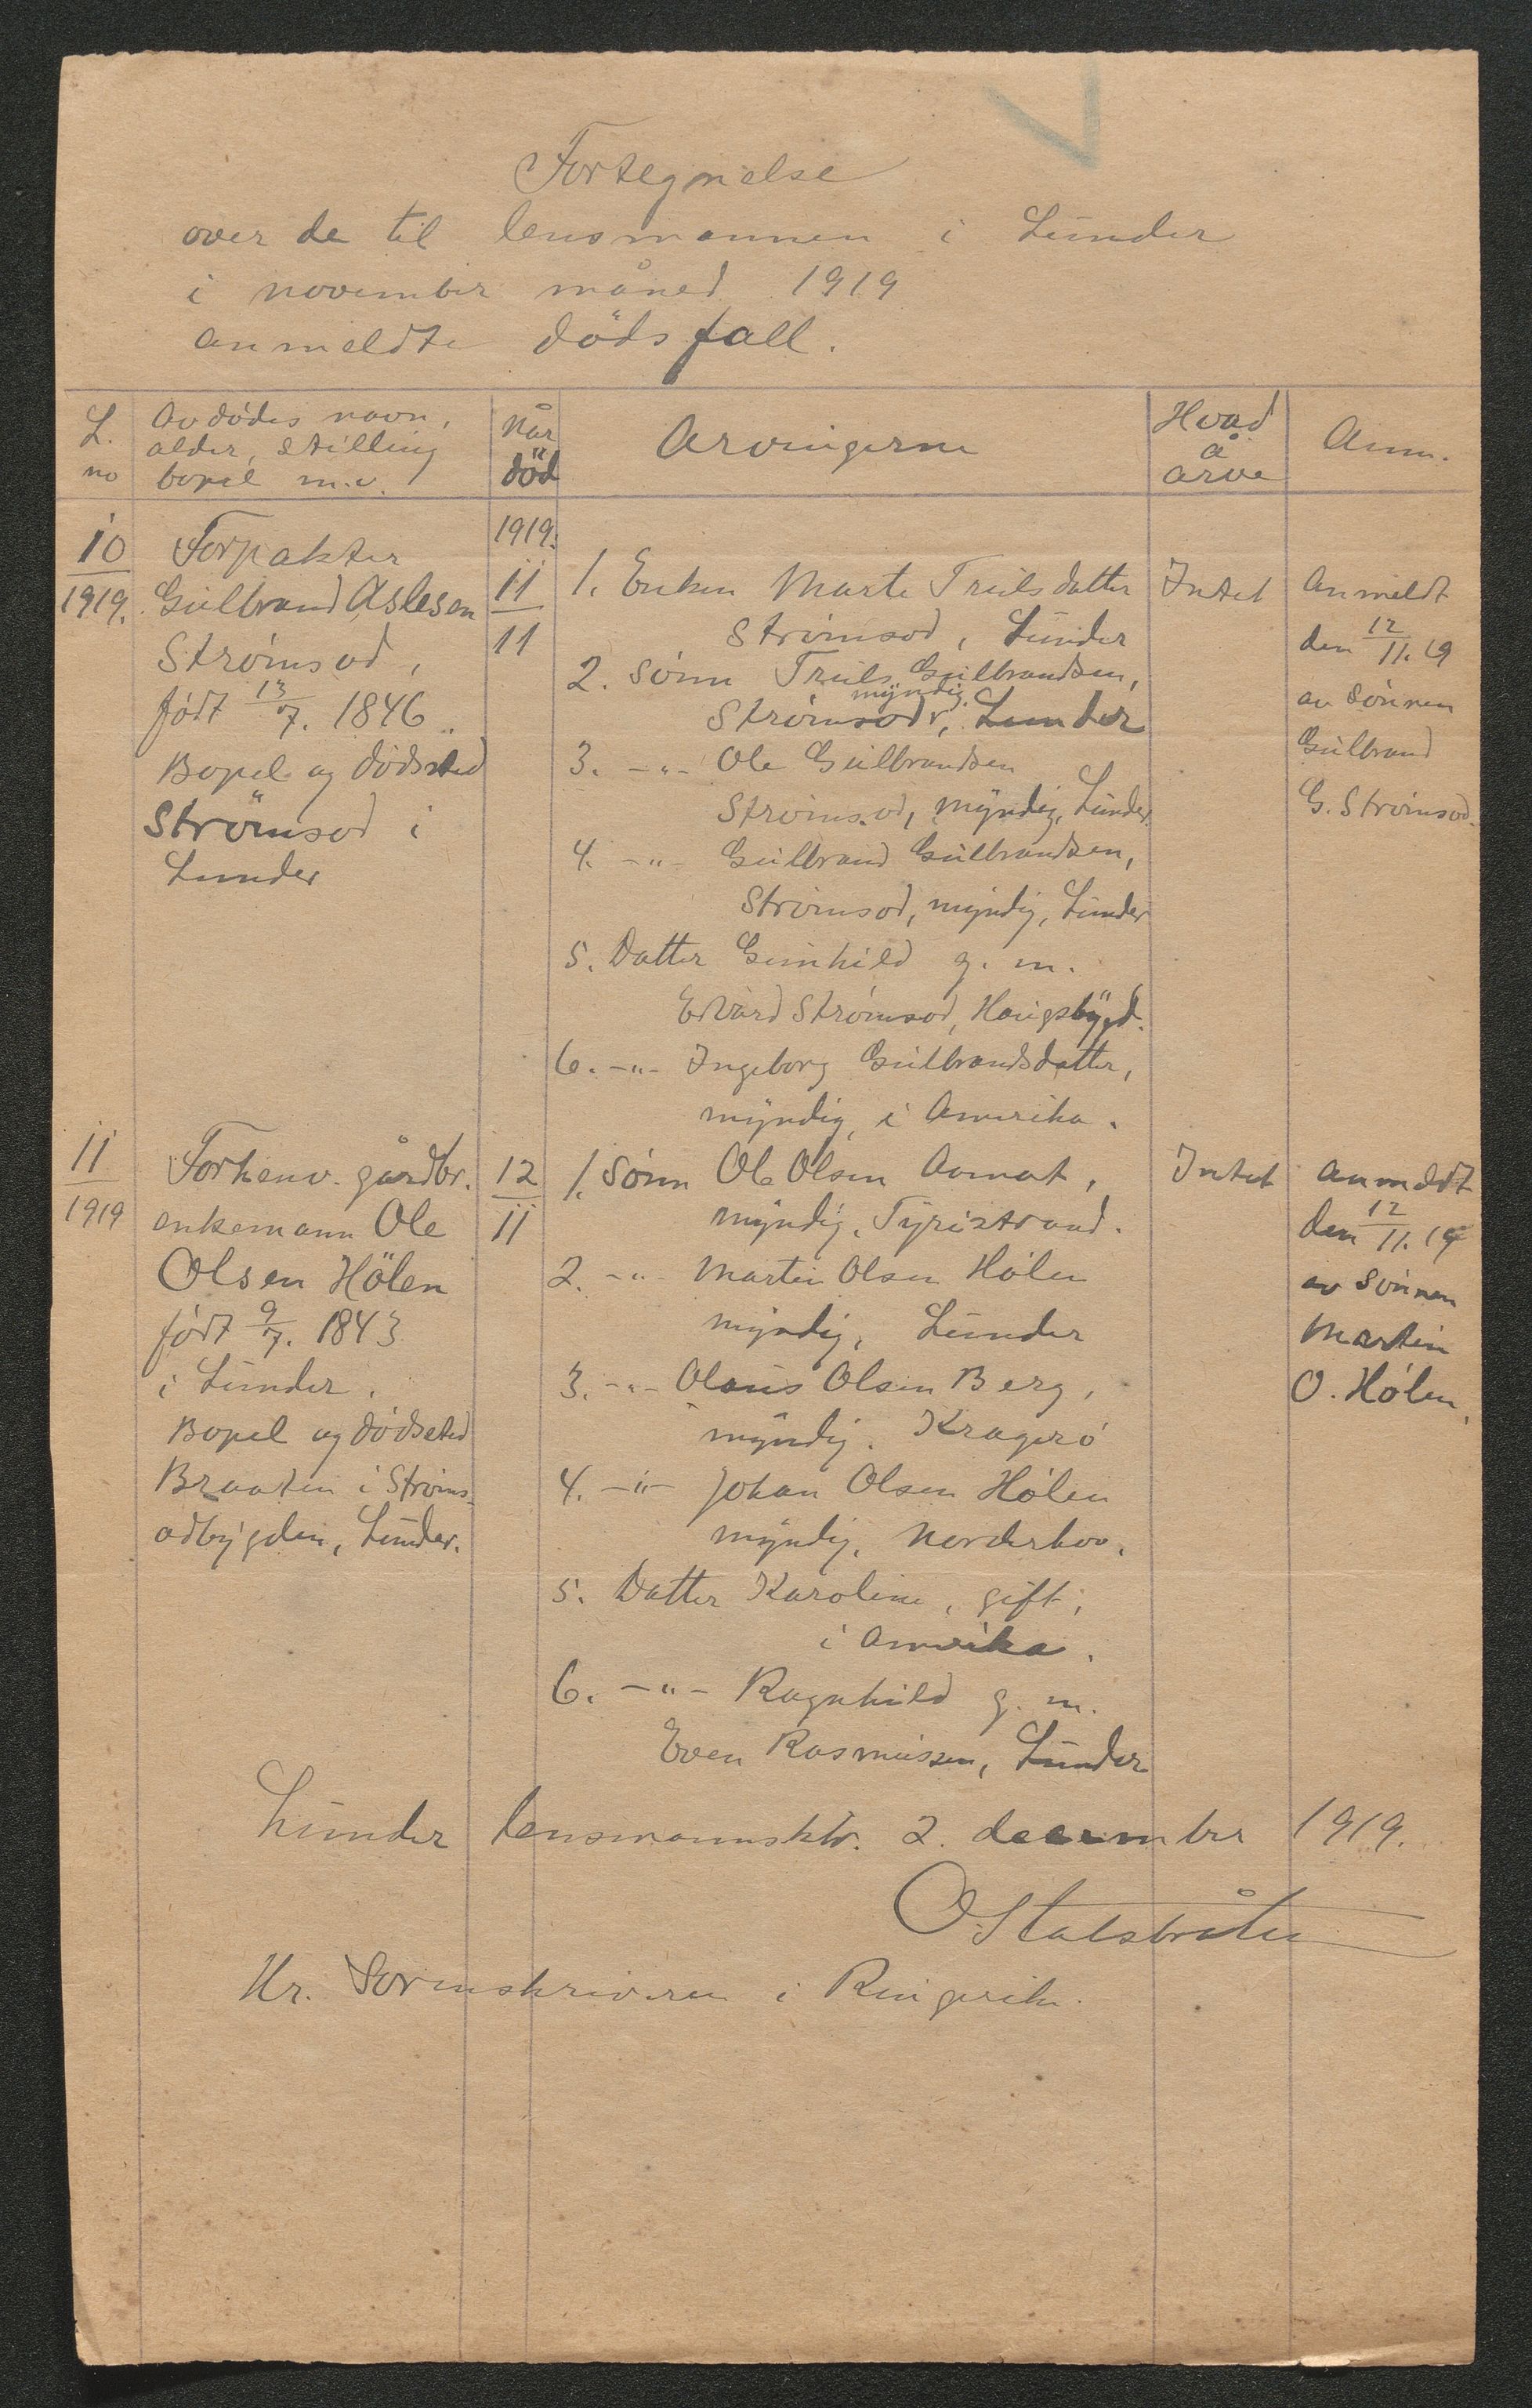 Fortegnelse
over de til lensmannen i Lunder
i november måned 1919
anmeldte dödsfall.
L. no
Avdødes navn,
alder, stilling
bopel m.v.
Når
död
Arvingerne
Hvad
å
arve
Anm.
10/1919.
Forpakter
Gulbrand Aslesen
Strømsod,
født 13/7. 1846
Bopel og dödssted
Strömsod i
Lunder
1919.
11/11
1. Enken Marte Trulsdatter
Strømsod, Lunder
2. Sønn Truls Gulbrandsen,
myndig.
Strømsod, Lunder
3. -"- Ole Gulbrandsen
Strømsod, myndig, Lunder.
4. -"- Gulbrand Gulbrandsen,
Strømsod, myndig, Lunder
5. Datter Gunhild g. m.
Edvard Strømsod, Haugsbygd.
6. -"- Ingeborg Gulbrandsdatter,
myndig, i Amerika.
Intet
Anmeldt
den 12/11. 19
av sønnen
Gulbrand
G. Strømsod.
11/1919
Forhenv. gårdbr.
enkemann Ole
Olsen Hölen
født 9/7. 1843
i Lunder.
Bopel og dødssted
Braaten i Strøms-
odbygden, Lunder.
12/11
1. Sønn Ole Olsen Aamot,
myndig, Tyristrand.
2. -"- Martin Olsen Hølen
myndig, Lunder
3. -"- Olaus Olsen Berg,
myndig. Kragerø
4. -"- Johan Olsen Hølen
myndig, Norderhov.
5. Datter Karoline, gift,
i Amerika.
6. -"- Ragnhild g. m.
Even Rasmussen, Lunder
Intet
Anmeldt
den 12/11. 19
av sønnen
Martin
O. Hølen.
Lunder lensmannsktr. 2. december 1919.
O Stalsbråten
Hr. Sorenskriveren i Ringerike.